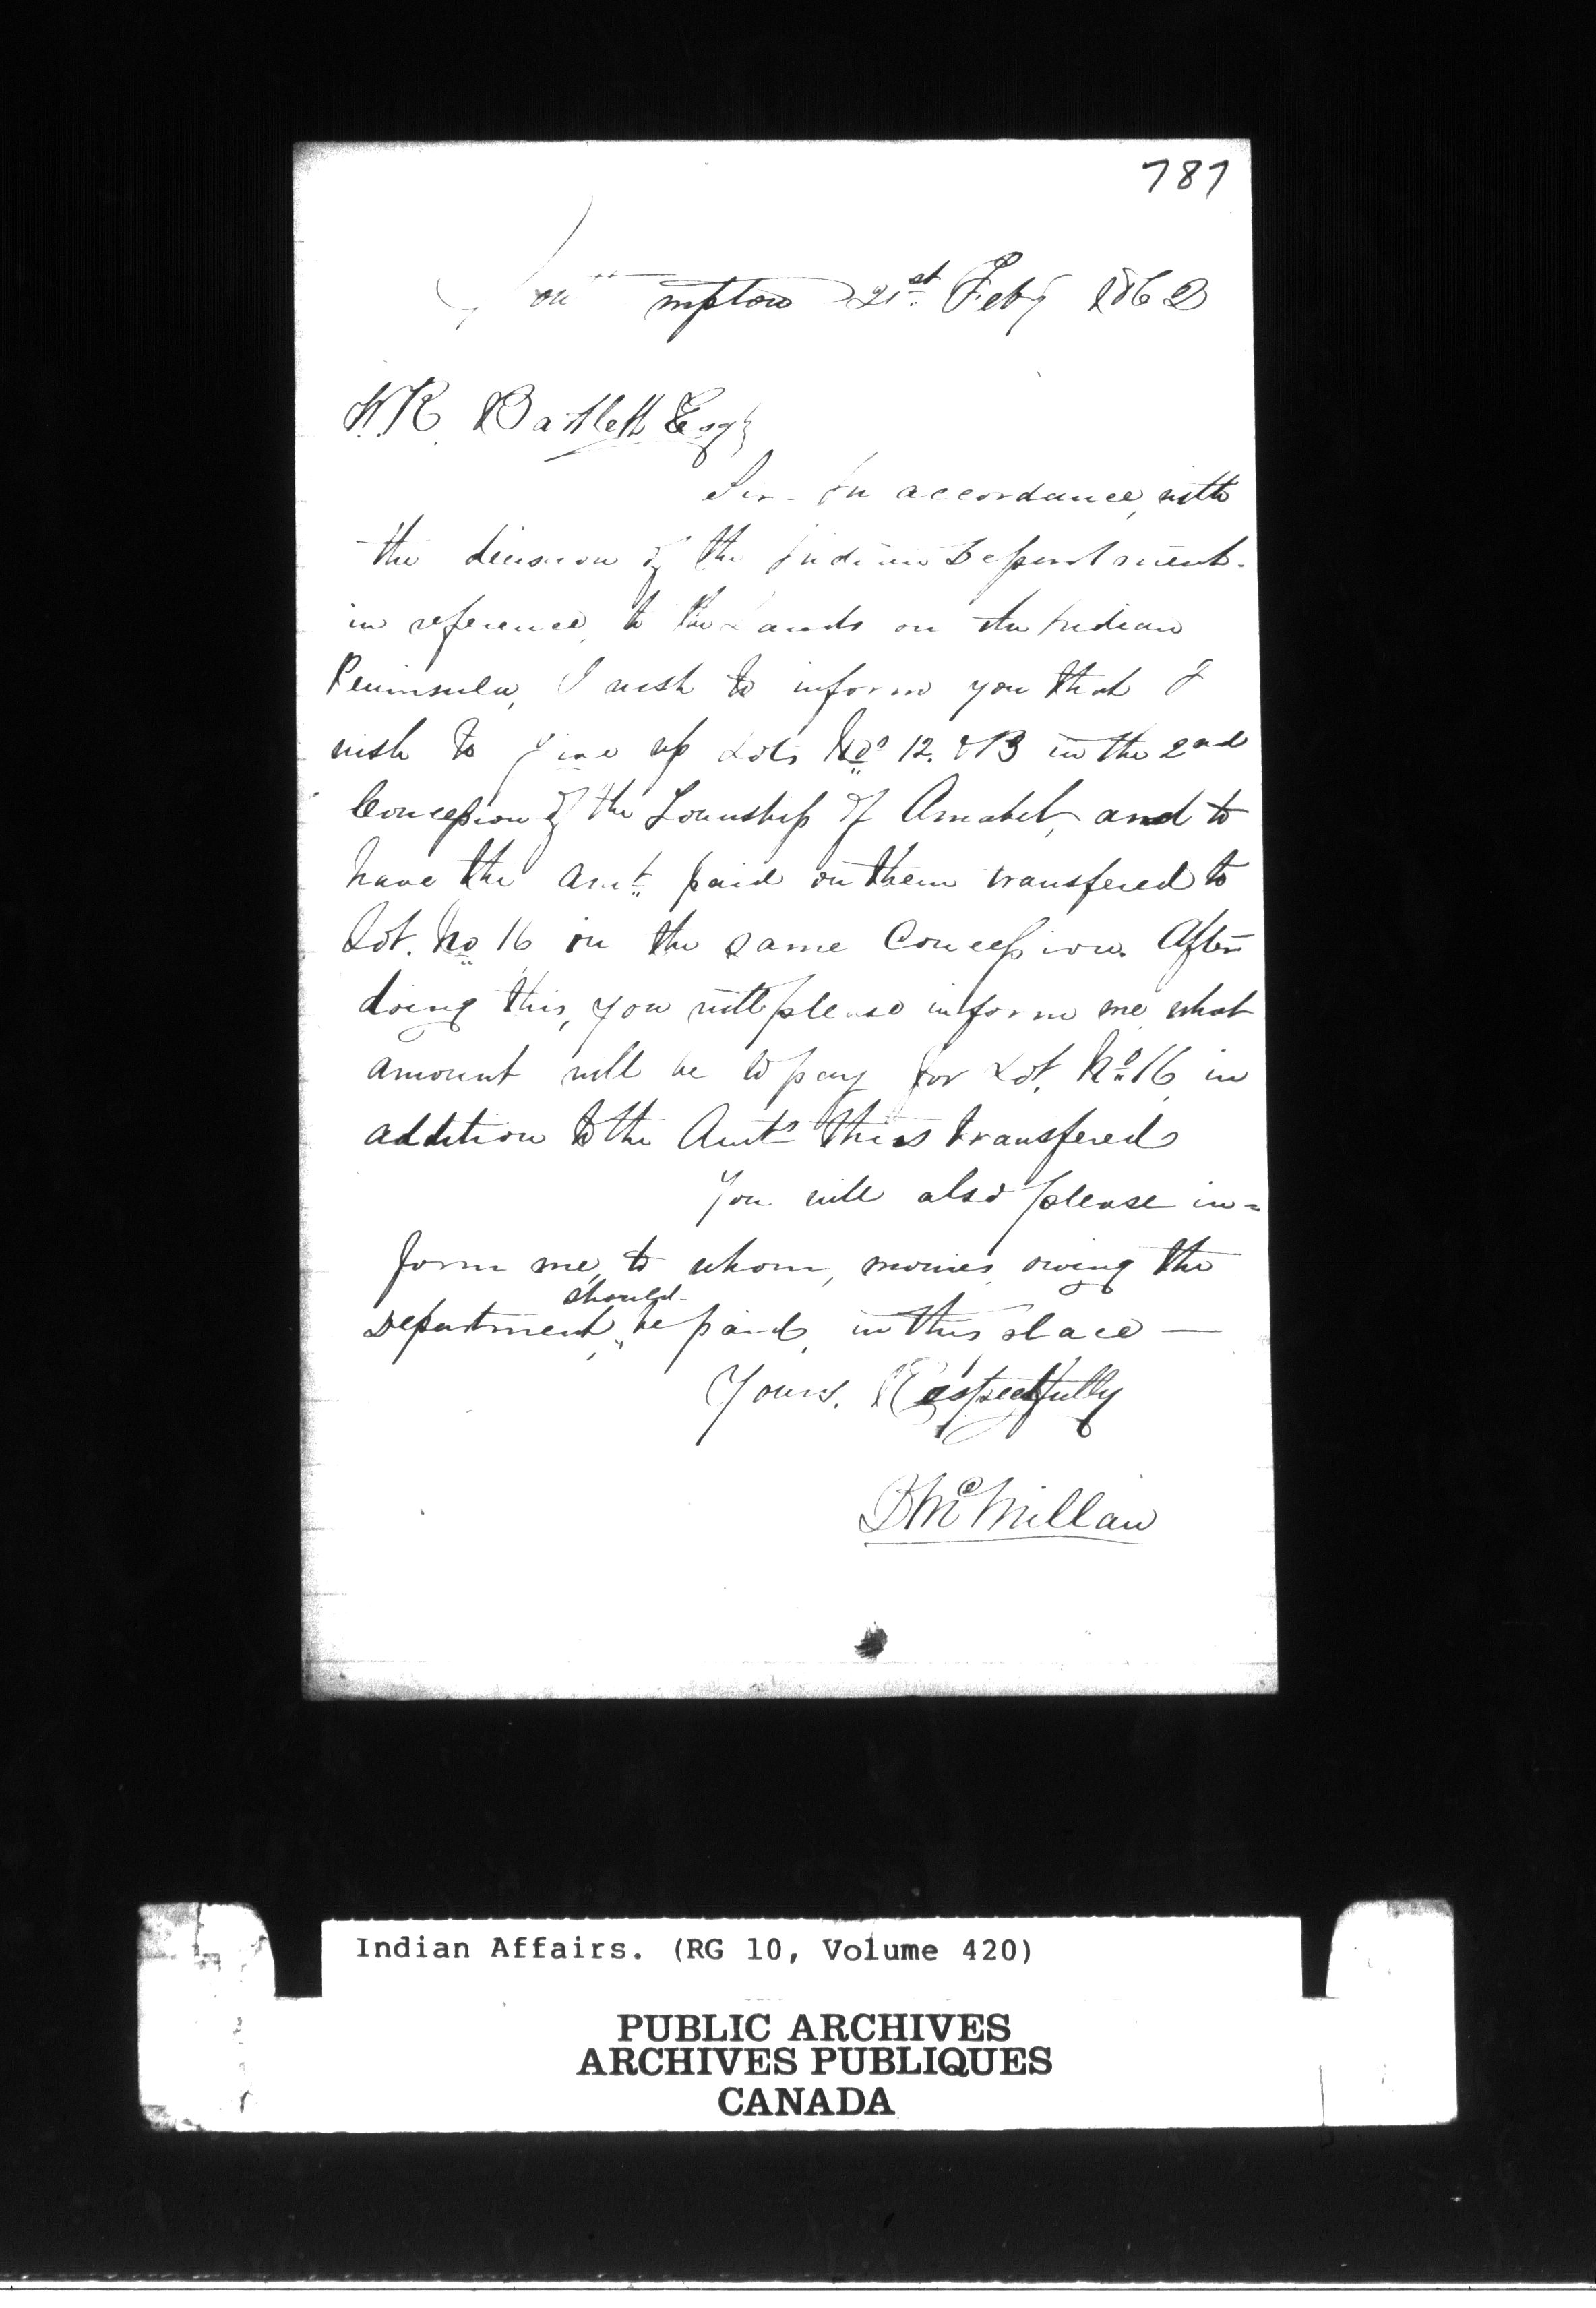 787
mpton 21st Feby 1862
W. R. Bartlett Esqr
Sir - In accordance, with
the decision of the Indian Department.
in reference, to the Lands on the Indian
Peninsula, I wish to inform you that I
wish to give up Lots Nos 12. & 13 in the 2nd
Concession of the Township of Amabel, and to
have the amt. paid on them transfered to
Lot. No 16 in the same Concession. After
doing this, you will please inform me what
amount will be to pay for Lot. No 16, in
addition to the Amts thus transfered
You will also please in=
form me, to whom, monies, owing the
should
Department, be paid, in this place —
Yours. Respectfully
D McMillan
Indian Affairs. (RG 10, Volume 420)
PUBLIC ARCHIVES
ARCHIVES PUBLIQUES
CANADA